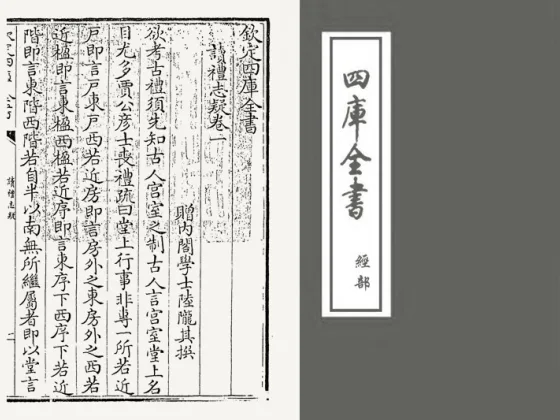 欽定四庫全書
讀禮志疑卷一
贈內閣學士陸隴其撰
欲考古禮須先知古人宮室之制古人言宮室堂上名
目尤多賈公彥士喪禮疏曰堂上行事非專一所若近
戶即言戶東戶西若近房即言房外之東房外之西若
近楹即言東楹西楹若近序即言東序下西序下若近
階即言東階西階若自半以南無所繼屬者即以堂言
讀禮志疑
四庫全書
經部